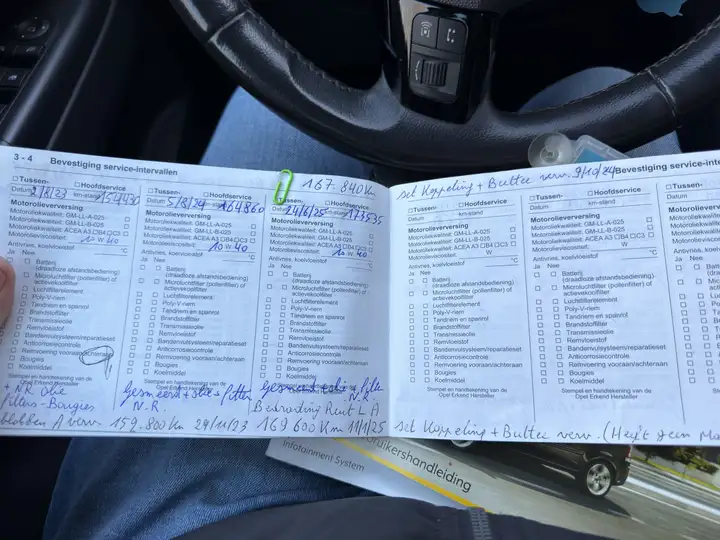 3 - 4 Bevestiging service-intervallen
167.840 Km
Tussen- Hoofdservice
Datum 2/8/23 km-stand 154930
Motorolieverversing
Motoroliekwaliteit: GM-LL-A-025
Motoroliekwaliteit: GM-LL-B-025
Motoroliekwaliteit: ACEA A3 CB4 DC3
Motorolieviscositeit: 10 W 40
Antivries, koelvloeistof °C
Ja Nee
Batterij
(draadloze afstandsbediening)
Microluchtfilter (pollenfilter) of
actievekoolfilter
Luchtfilterelement
Poly-V-riem
Tandriem en spanrol
Brandstoffilter
Transmissieolie
Remvloeistof
Bandenvulsysteem/reparatieset
Anticorrosiecontrole
Remvoering vooraan/achteraan
Bougies
Koelmiddel
Stempel en handtekening van de
Opel Erkend Hersteller
+ N.R. olie
filters-Bougies
blokken A verv 159.800 Km 24/11/23
Tussen- Hoofdservice
Datum 5/8/24 km-stand 164860
Motorolieverversing
Motoroliekwaliteit: GM-LL-A-025
Motoroliekwaliteit: GM-LL-B-025
Motoroliekwaliteit: ACEA A3 CB4 DC3
Motorolieviscositeit: 10 W 40
Antivries, koelvloeistof °C
Ja Nee
Batterij
(draadloze afstandsbediening)
Microluchtfilter (pollenfilter) of
actievekoolfilter
Luchtfilterelement
Poly-V-riem
Tandriem en spanrol
Brandstoffilter
Transmissieolie
Remvloeistof
Bandenvulsysteem/reparatieset
Anticorrosiecontrole
Remvoering vooraan/achteraan
Bougies
Koelmiddel
Stempel en handtekening van de
Opel Erkend Hersteller
Gesmeerd + olie + filter
N.R.
Tussen- Hoofdservice
Datum 24/6/25 km-stand 173535
Motorolieverversing
Motoroliekwaliteit: GM-LL-A-025
Motoroliekwaliteit: GM-LL-B-025
Motoroliekwaliteit: ACEA A3 CB4 DC3
Motorolieviscositeit: 10 W 40
Antivries, koelvloeistof °C
Ja Nee
Batterij
(draadloze afstandsbediening)
Microluchtfilter (pollenfilter) of
actievekoolfilter
Luchtfilterelement
Poly-V-riem
Tandriem en spanrol
Brandstoffilter
Transmissieolie
Remvloeistof
Bandenvulsysteem/reparatieset
Anticorrosiecontrole
Remvoering vooraan/achteraan
Bougies
Koelmiddel
Stempel en handtekening van de
Opel Erkend Hersteller
Gesmeerd + olie + filter
N.R.
Bedrading Remt L A
169 600 Km 11/1/25
set Koppeling + Buttee verv. 9/10/24
Bevestiging service-inter
Tussen- Hoofdservice
Datum km-stand
Motorolieverversing
Motoroliekwaliteit: GM-LL-A-025
Motoroliekwaliteit: GM-LL-B-025
Motoroliekwaliteit: ACEA A3 CB4 DC3
Motorolieviscositeit: W
Antivries, koelvloeistof °C
Ja Nee
Batterij
(draadloze afstandsbediening)
Microluchtfilter (pollenfilter) of
actievekoolfilter
Luchtfilterelement
Poly-V-riem
Tandriem en spanrol
Brandstoffilter
Transmissieolie
Remvloeistof
Bandenvulsysteem/reparatieset
Anticorrosiecontrole
Remvoering vooraan/achteraan
Bougies
Koelmiddel
Stempel en handtekening van de
Opel Erkend Hersteller
Tussen- Hoofdservice
Datum km-stand
Motorolieverversing
Motoroliekwaliteit: GM-LL-A-025
Motoroliekwaliteit: GM-LL-B-025
Motoroliekwaliteit: ACEA A3 CB4 DC3
Motorolieviscositeit: W
Antivries, koelvloeistof °C
Ja Nee
Batterij
(draadloze afstandsbediening)
Microluchtfilter (pollenfilter) of
actievekoolfilter
Luchtfilterelement
Poly-V-riem
Tandriem en spanrol
Brandstoffilter
Transmissieolie
Remvloeistof
Bandenvulsysteem/reparatieset
Anticorrosiecontrole
Remvoering vooraan/achteraan
Bougies
Koelmiddel
Stempel en handtekening van de
Opel Erkend Hersteller
set Koppeling + Buttee verv. (Heeft geen
Tussen-
Datum
Motorolieverv
Motoroliekwalit
Ja Nee
Batt
ruikershandleiding
Infotainment System